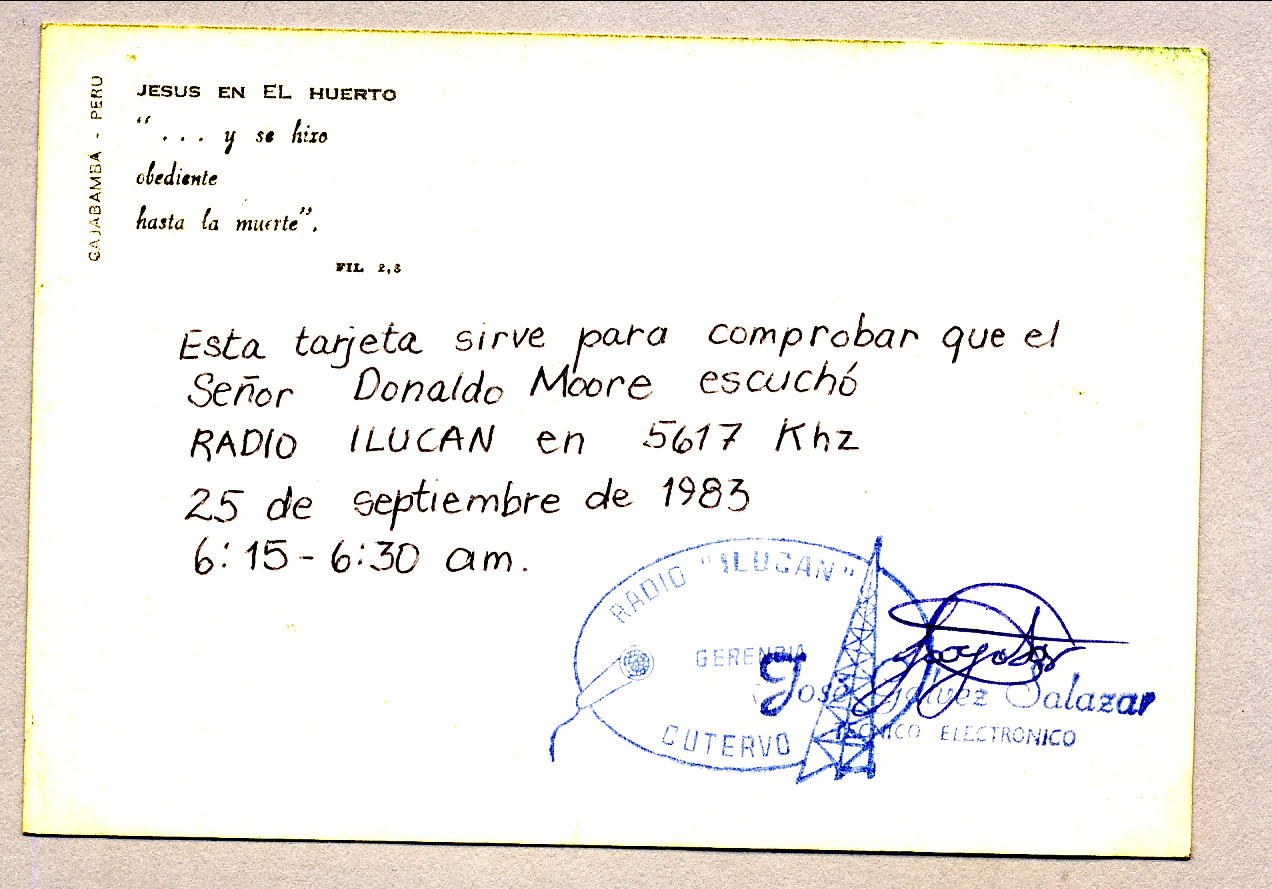 CAJABAMBA - PERU
JESUS EN EL HUERTO
“. . . y se hizo
obediente
hasta la muerte”.
FIL 2,8
Esta tarjeta sirve para comprobar que el
Señor Donaldo Moore escuchó
RADIO ILUCAN en 5617 Khz
25 de septiembre de 1983
6:15-6:30 am.
RADIO "ILUCAN"
GERENCIA
José Galvez Salazar
TECNICO ELECTRONICO
CUTERVO